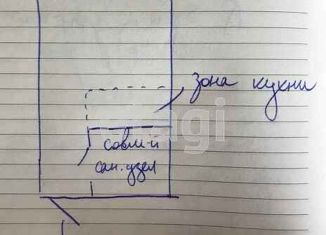 зона кухни
совм-й
сан.узел